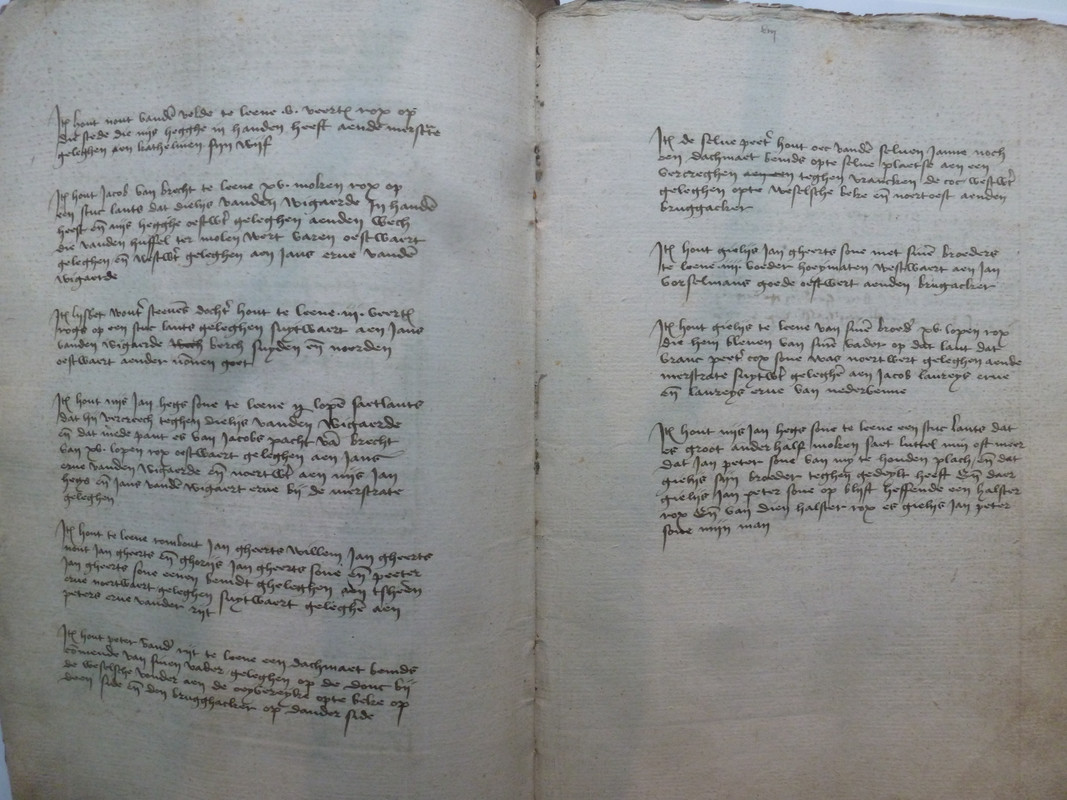 Itē hout nout vandē velde te leene .v. veertl rox op
die stede die mijs hegghe in handen heeft aendē merstrate
geleghen aen kathelinen sijn wijf
Itē hout Jacob van brecht te leene xv. moken rox op
een stuc lants dat dielijs vanden wigaerde In handē
heeft eñ mijs hegghe oestwert geleghen aenden wech
die vanden huffel ter molen wert varen oestwaert
geleghen eñ westwert geleghen aen Jans erve vandē
wigaerde
Itē lijsbet wouters steevēs dochter hout te leene .iii. veertl
rogs op een stuc lants geleghen suytwaert aen Jans
vanden wigaerde berch suyden eñ noorden
oestwaert aender nōnen goet
Itē hout mijs Jan hegs sone te leene lopē saetlants
dat hij vercreech teghen dielijs vanden wigaerde
eñ dat mede pant es van Jacobs pacht vā brecht
van xv. lopen rox oestwaert geleghen aen Jans
erve vanden wigaerde eñ noortwert aen mijs Jan
hegs eñ Jans vandē wigaert erve bij de merstrate
geleghen
Itē hout te leene rombout Jan gheerts willem Jan gheerts
nout Jan gheerts eñ ghorijs Jan gheerts sone eñ peeter
Jan gheerts sone eenen bemdt gheleghen aen
erve noertwaert geleghen suytwaert geleghē aen
peters erve vander rijt
Itē hout peter vandē rijt te leene een dachmaet bemds
comende van sinen vader geleghen op de donc bij
de westsche vonder aen de opte beke op
deen side eñ den brugghacker op dander side
Itē de selve peeter hout oec vandē selven Janne noch
een dachmaet bemds opte selve plaetse aen een
vercreghen teghen vrancken de coc westwert
geleghen opte westsche beke eñ noortoest aenden
bruggacker
Itē hout gielijs Jan gheerts sone met sinē broeders
te leene .iii. voeder hoeymaten westwaert aen Jan
vorselmans goede oestwert aenden brugacker
Itē hout gielijs te leene van sinē broeder xv. lopen rox
die hem bleven van sinē vader op dat lant dat
vranc peeter cox sone was noertwert geleghen aende
merstrate suytwert geleghē aen Jacob laureys erve
eñ laureys erve van nedervenne
Itē hout mijs Jan hegs sone te leene een stuc lants dat
es groot anderhalf moken saet luttel min oft meer
dat Jan peter sone van mij te houden plach eñ dat
gielijs sijn broeder teghen gedeylt heeft Eñ daer
gielijs Jan peter sone op blijft heffende een halster
rox Eñ van dien halster rox es gielijs Jan peter
sone mijn man